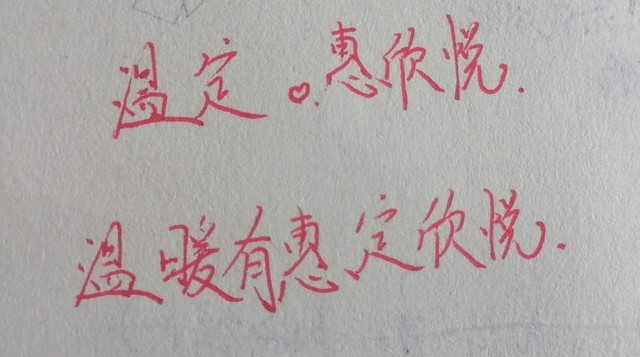 温定。♡.惠欣悦.
温暖有惠.定欣悦.